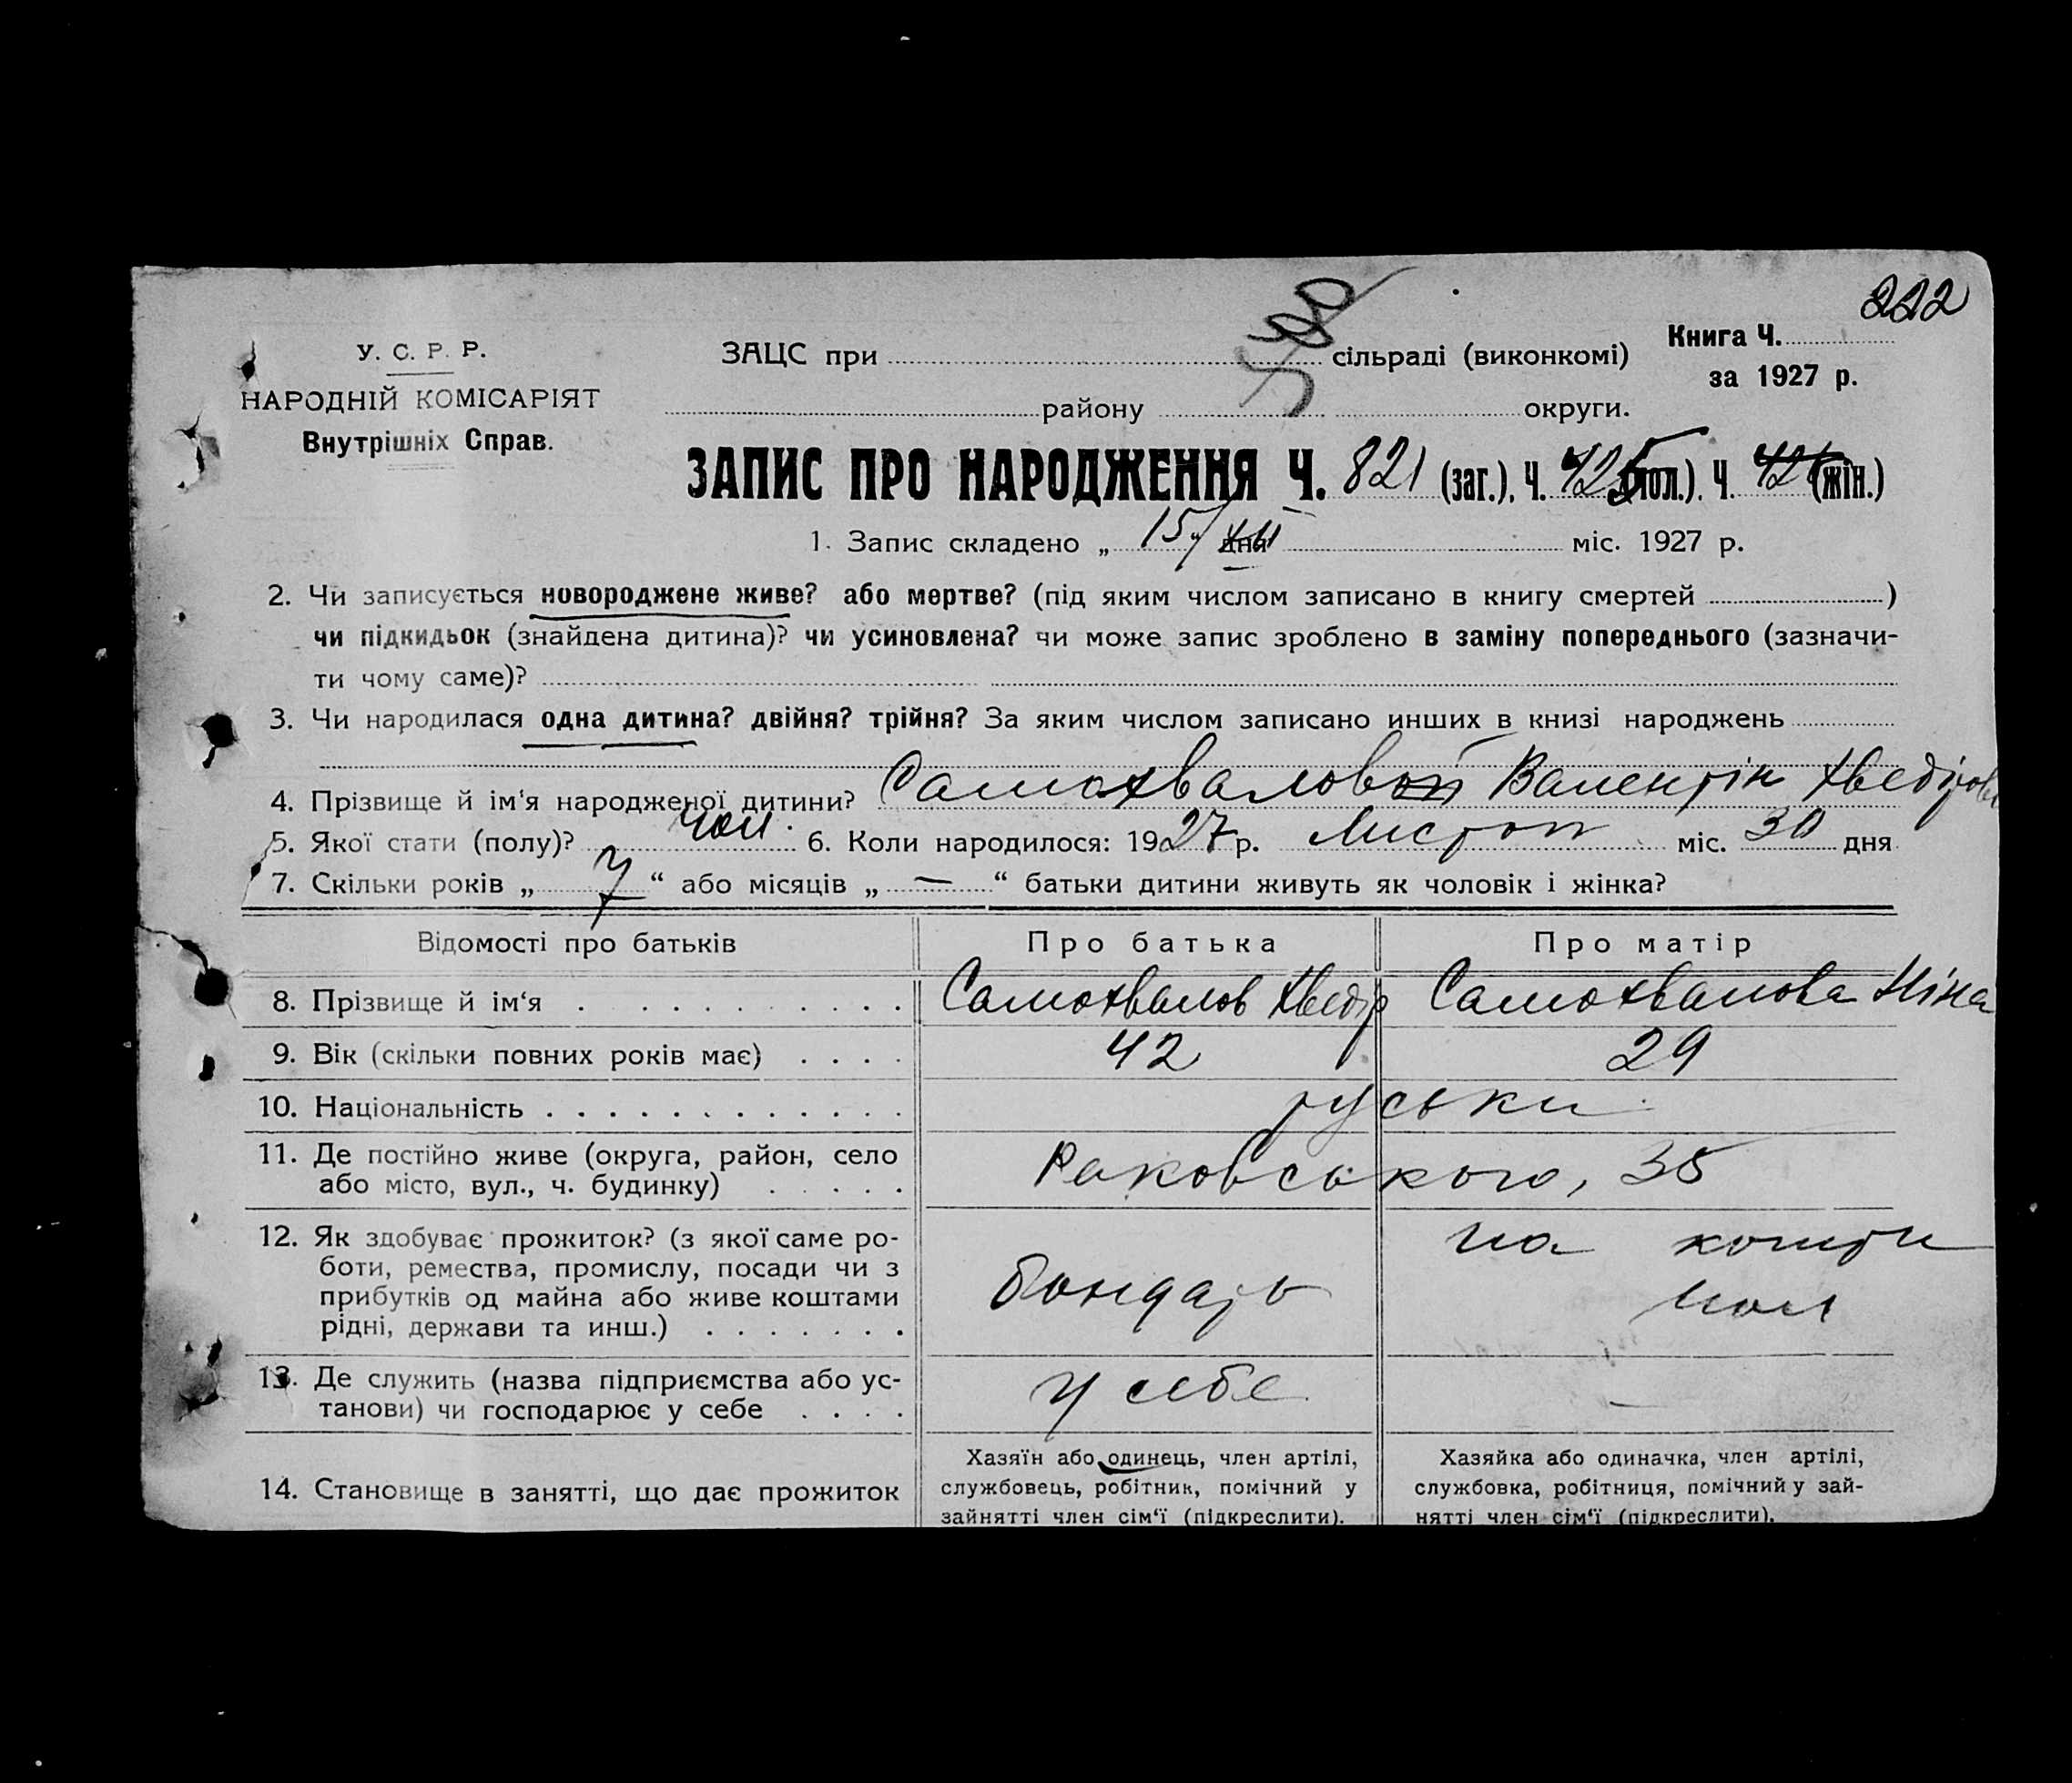 222
У. С. Р. Р.
НАРОДНІЙ КОМІСАРІЯТ
Внутрішніх Справ.
ЗАЦС при сільраді (виконкомі)
району округи.
Книга Ч.
за 1927 р.
ЗАПИС ПРО НАРОДЖЕННЯ Ч. 821 (заг.), Ч. 425 (чол.). Ч. 421 (жін.)
1. Запис складено „ 15/XII “ дня міс. 1927 р.
2. Чи записується новороджене живе? або мертве? (під яким числом записано в книгу смертей )
чи підкидьок (знайдена дитина)? чи усиновлена? чи може запис зроблено в заміну попереднього (зазначи-
ти чому саме)?
3. Чи народилася одна дитина? двійня? трійня? За яким числом записано инших в книзі народжень
4. Прізвище й ім'я народженої дитини? Самохвалов Валентін
5. Якої стати (полу)? чол. 6. Коли народилося: 1927 р. Листоп міс. 30 дня
7. Скільки років „ 7 “ або місяців „ — “ батьки дитини живуть як чоловік і жінка?
Відомості про батьків Про батька Про матір
8. Прізвище й ім‘я . . . . . . . . . Самохвалов Хведір Самохвалова Ніна
9. Вік (скільки повних років має) . . . . 42 29
10. Національність . . . . . . . . . . . . руськи
11. Де постійно живе (округа, район, село
або місто, вул., ч. будинку) . . . . . Раковського, 35
12. Як здобуває прожиток? (з якої саме ро-
боти, ремества, промислу, посади чи з
прибутків од майна або живе коштами
рідні, держави та инш.) . . . . . . .
бондарь
на кошти
чол
13. Де служить (назва підприємства або ус-
танови) чи господарює у себе . . . .
у себе —
14. Становище в занятті, що дає прожиток
Хазяїн або одинець, член артілі,
службовець, робітник, помічний у
зайнятті член сім‘ї (підкреслити).
Хазяйка або одиначка, член артілі,
службовка, робітниця, помічний у зай-
нятті член сім‘ї (підкреслити).